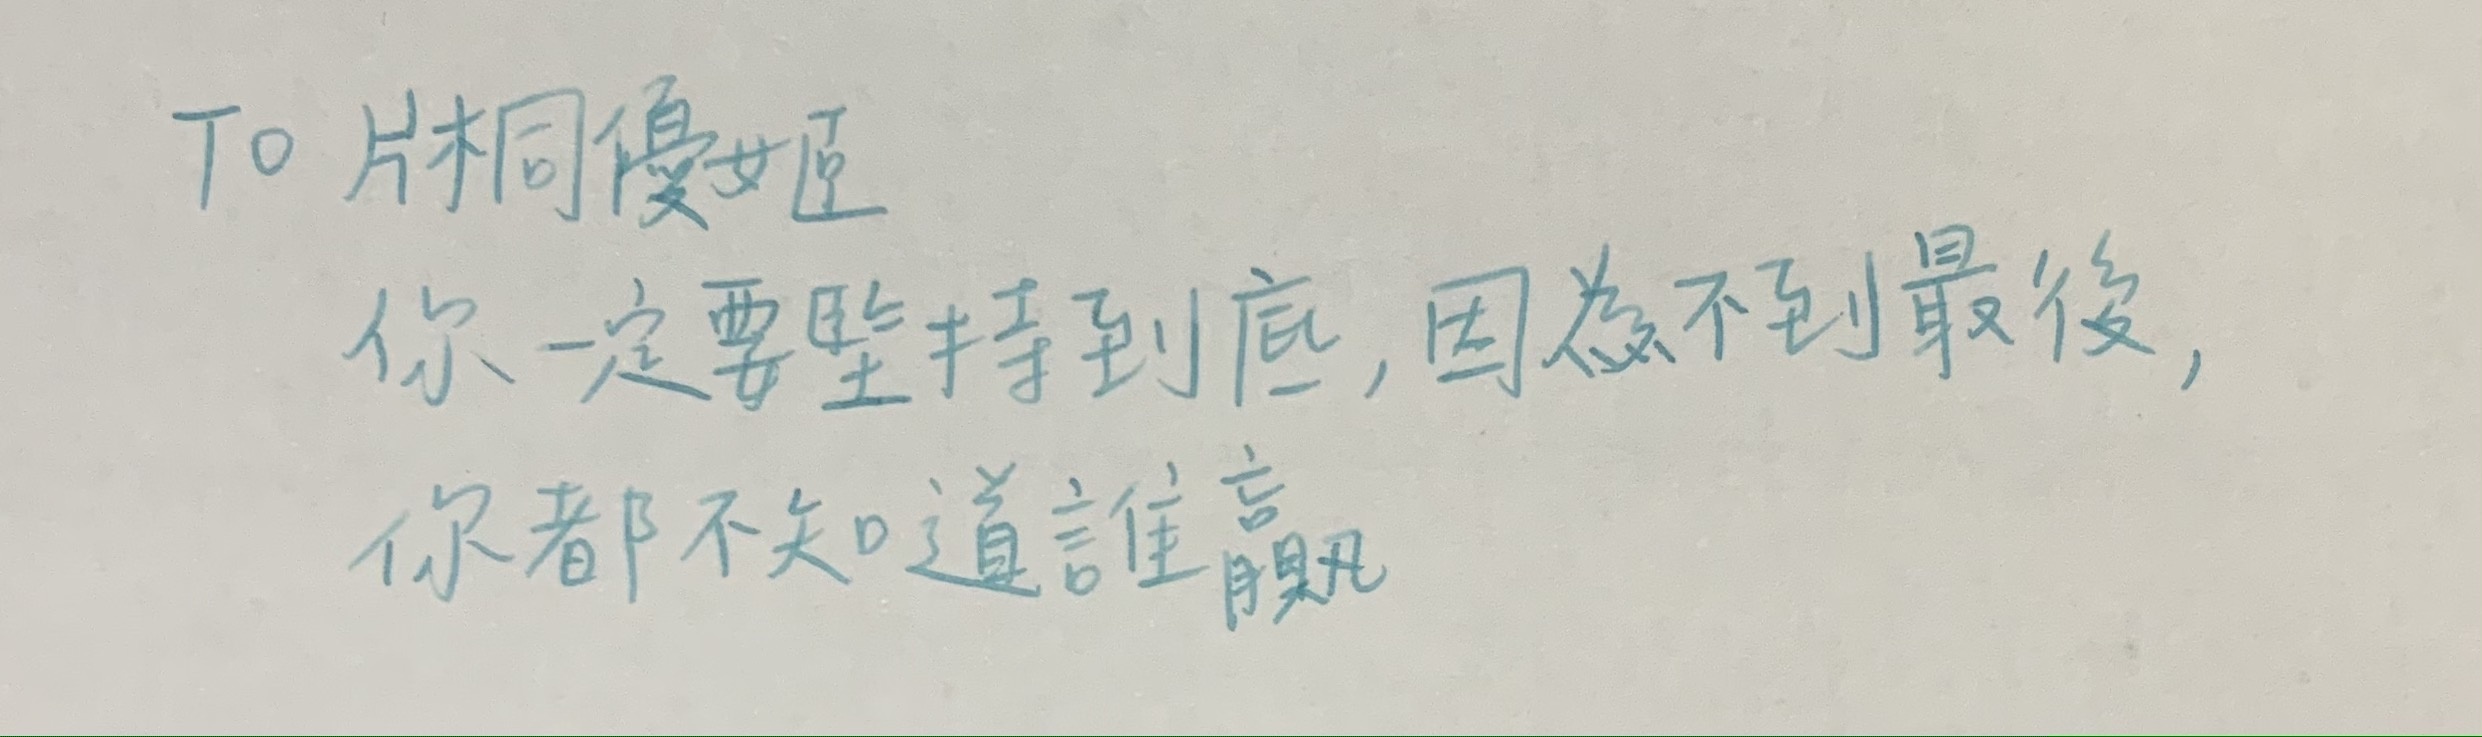 To 片桐優姬
你一定要堅持到底,因為不到最後,
你都不知道誰贏